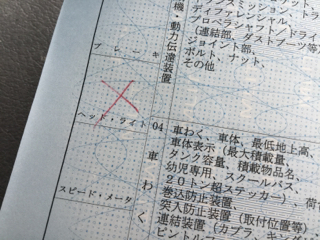 機・動力伝達装置
ランスミッション、
ディファレンシャル、
プロペラシャフト/ドライ
(連結部、ダストブーツ等
ジョイント部、
ボルト、ナット、
その他
ブレーキ
ヘッド・ライト
スピード・メータ
04
車わく
車わく、車体、最低地上高、
車体表示(最大積載量、
タンク容量、積載物品名、
幼児専用、スクールバス、
20トン超ステッカー)、荷
巻込防止装置、
突入防止装置(取付位置等)、
連結装置(カプラ、キング
ピントル